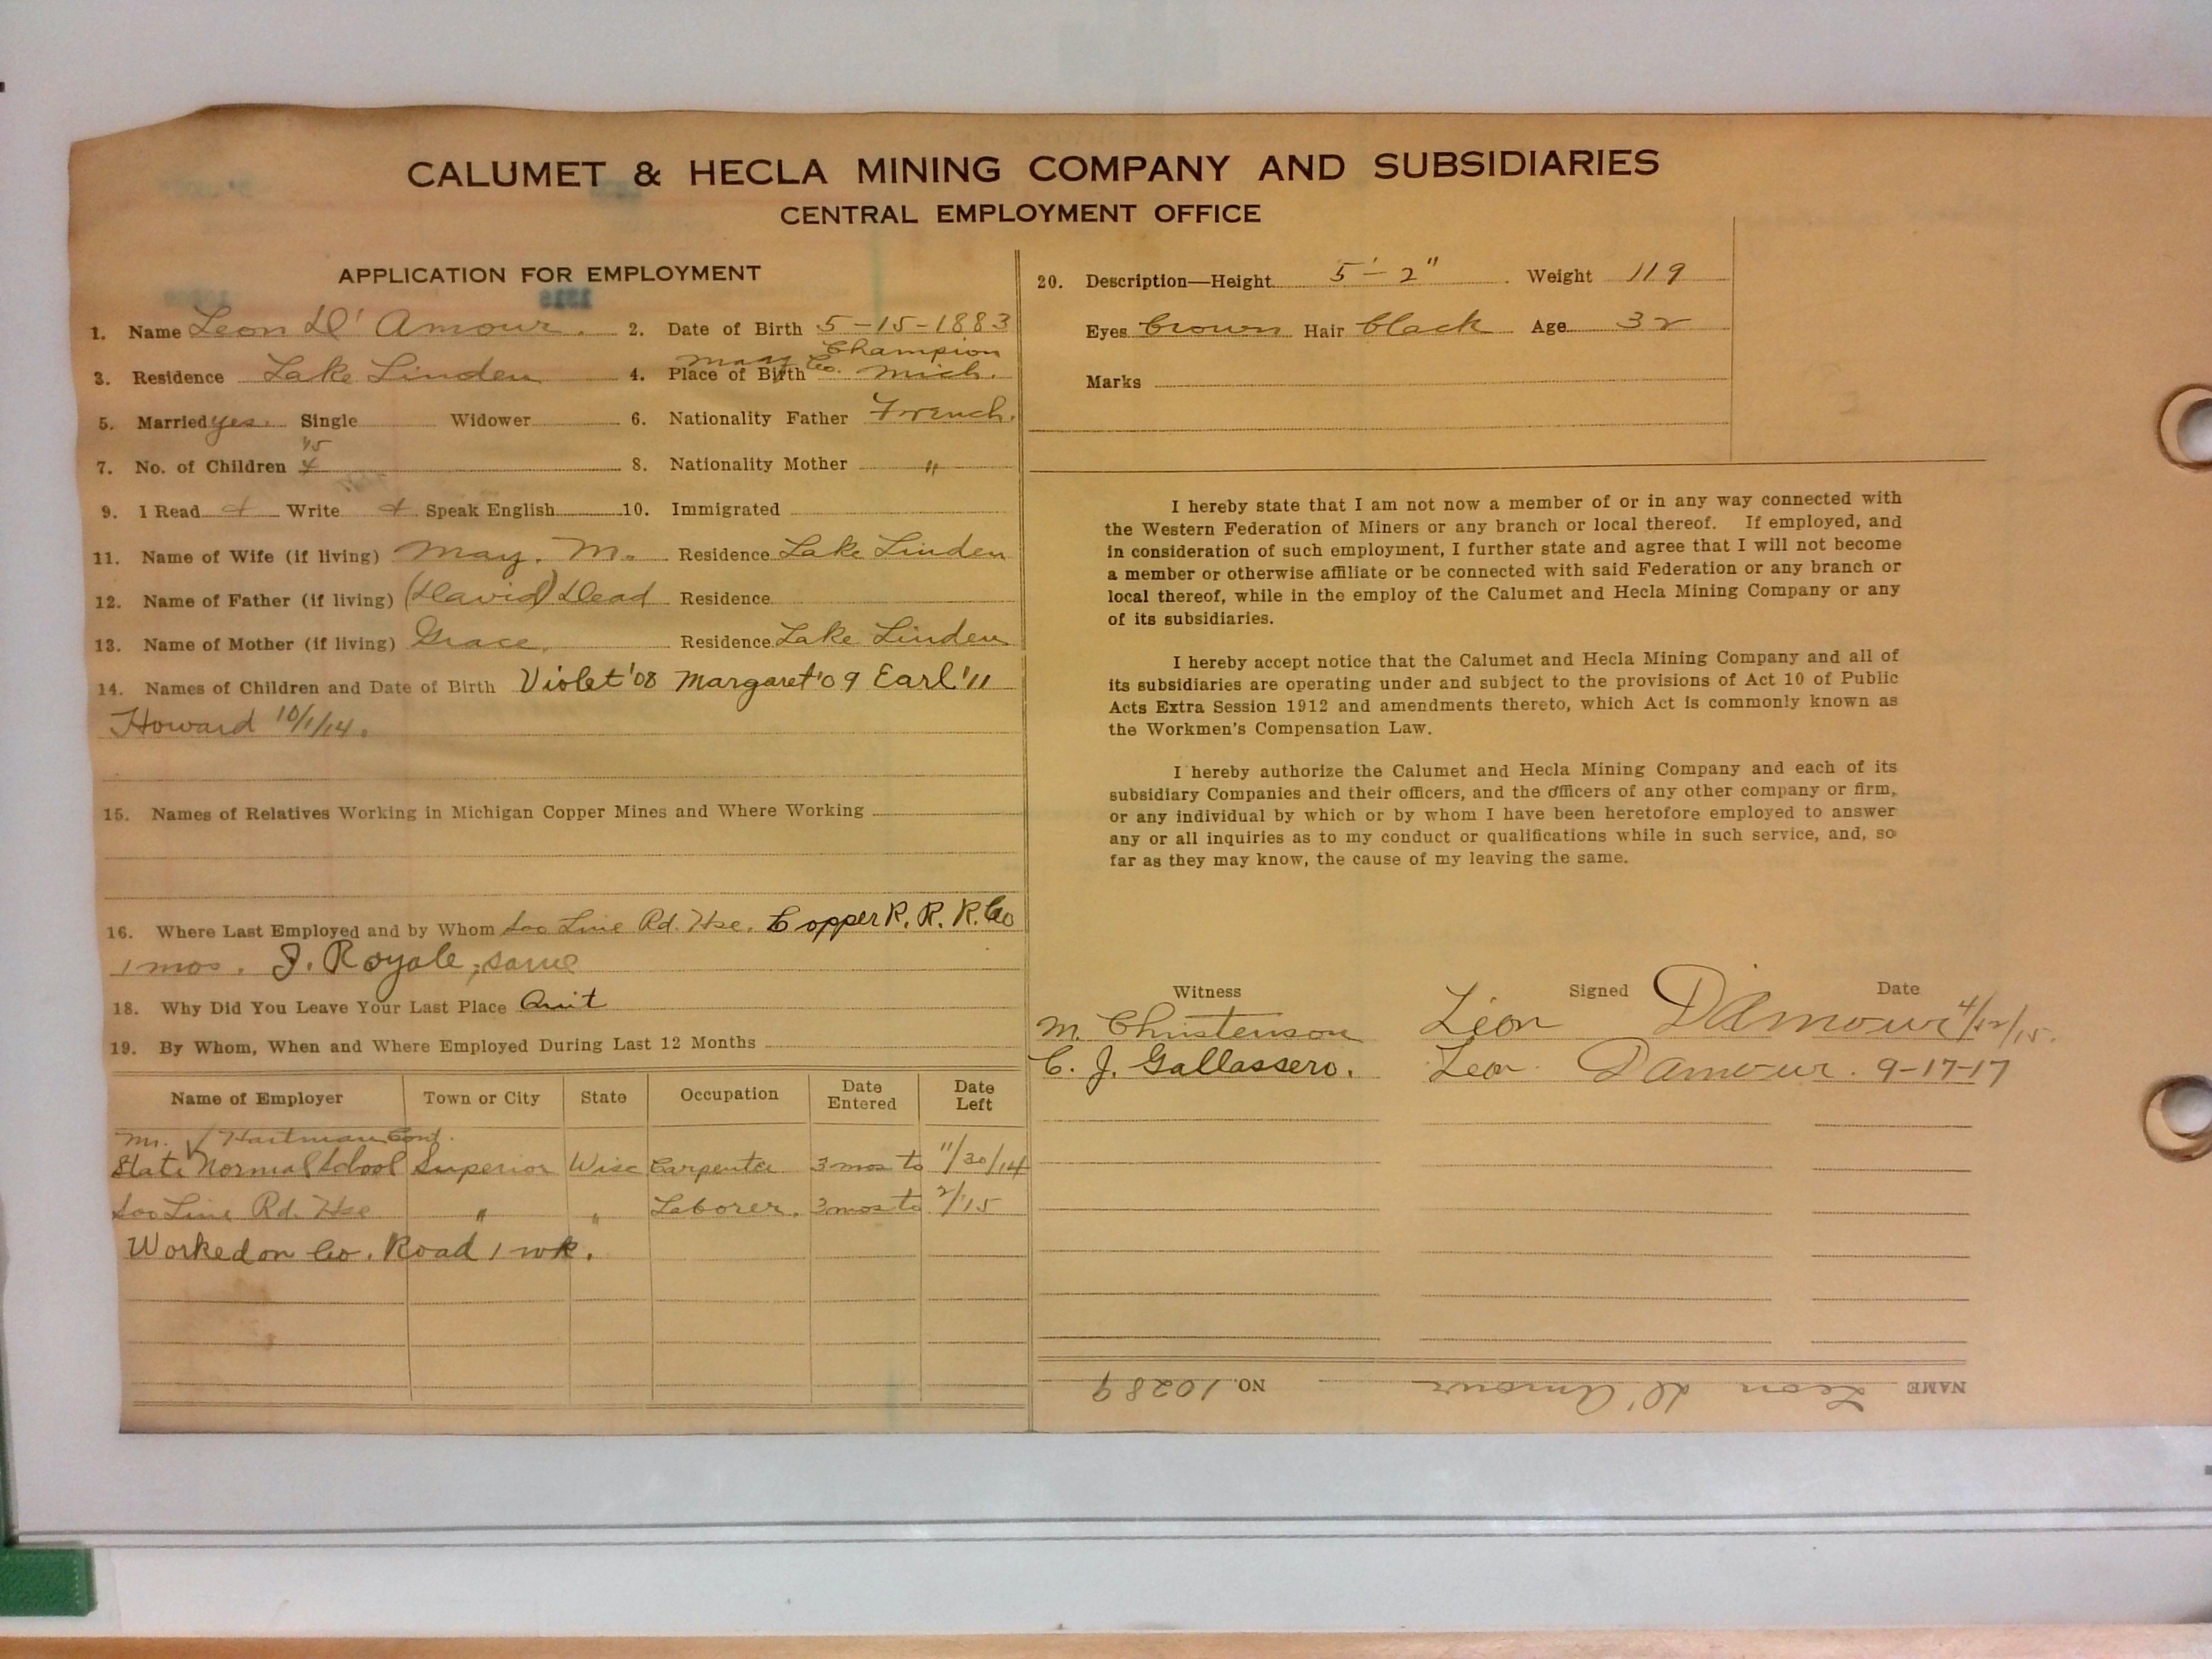 CALUMET & HECLA MINING COMPANY AND SUBSIDIARIES
CENTRAL EMPLOYMENT OFFICE
APPLICATION FOR EMPLOYMENT
1. Name Leon D'Amour. 2. Date of Birth 5-15-1883
Champion
3. Residence Lake Linden 4. Place of Birth Co. Mich.
5. Married yes. Single Widower 6. Nationality Father French.
7. No. of Children 4 8. Nationality Mother "
9. I Read + Write + Speak English 10. Immigrated
11. Name of Wife (if living) May. M. Residence Lake Linden
12. Name of Father (if living) (David) Dead Residence
13. Name of Mother (if living) Grace. Residence Lake Linden
14. Names of Children and Date of Birth Violet '08 Margaret '09 Earl '11
Howard 10/1/14.
15. Names of Relatives Working in Michigan Copper Mines and Where Working
16. Where Last Employed and by Whom Soo Line Rd. Hse. Copper R. R. R. Co
1 mos. J. Royale, same
18. Why Did You Leave Your Last Place Quit
19. By Whom, When and Where Employed During Last 12 Months
Name of Employer Town or City State Occupation Date Entered Date Left
Mr. Hartman Cont.
State Normal School Superior Wisc Carpenter 3 mos to 11/30/14
Soo Line Rd. Hse " " Laborer. 3 mos to 2/15
Worked on Co. Road 1 wk.
20. Description—Height 5'-2" Weight 119
Eyes brown Hair black Age 32
Marks
I hereby state that I am not now a member of or in any way connected with
the Western Federation of Miners or any branch or local thereof. If employed, and
in consideration of such employment, I further state and agree that I will not become
a member or otherwise affiliate or be connected with said Federation or any branch or
local thereof, while in the employ of the Calumet and Hecla Mining Company or any
of its subsidiaries.
I hereby accept notice that the Calumet and Hecla Mining Company and all of
its subsidiaries are operating under and subject to the provisions of Act 10 of Public
Acts Extra Session 1912 and amendments thereto, which Act is commonly known as
the Workmen's Compensation Law.
I hereby authorize the Calumet and Hecla Mining Company and each of its
subsidiary Companies and their officers, and the officers of any other company or firm,
or any individual by which or by whom I have been heretofore employed to answer
any or all inquiries as to my conduct or qualifications while in such service, and, so
far as they may know, the cause of my leaving the same.
Witness Signed Date
M. Christenson Léon D'Amour 4/12/15.
C. J. Gallassero. Leon Damour. 9-17-17
NAME Leon D'Amour NO. 10289